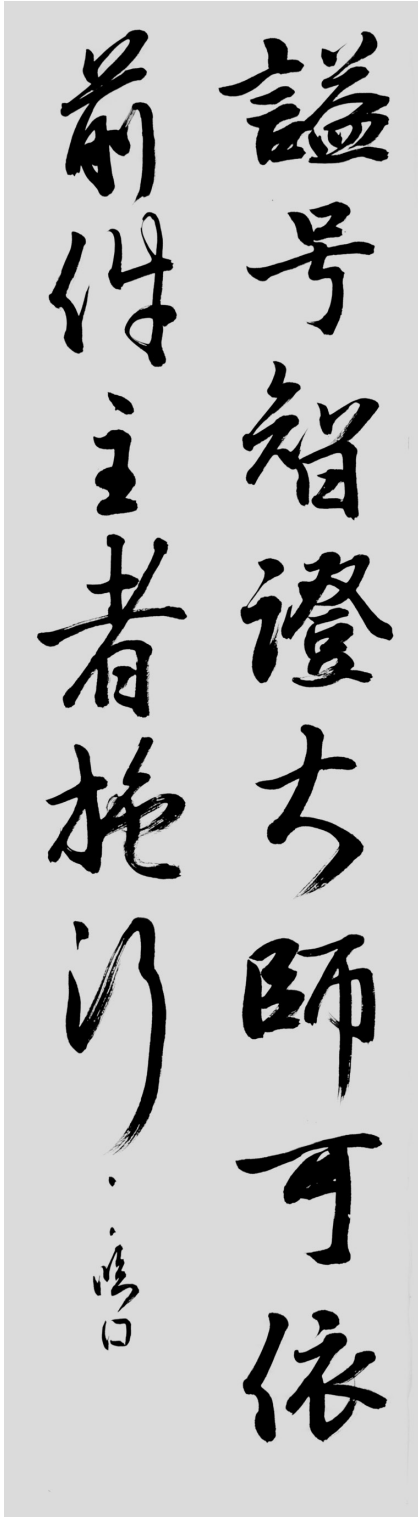 謚号智證大師可依
前件主者施行